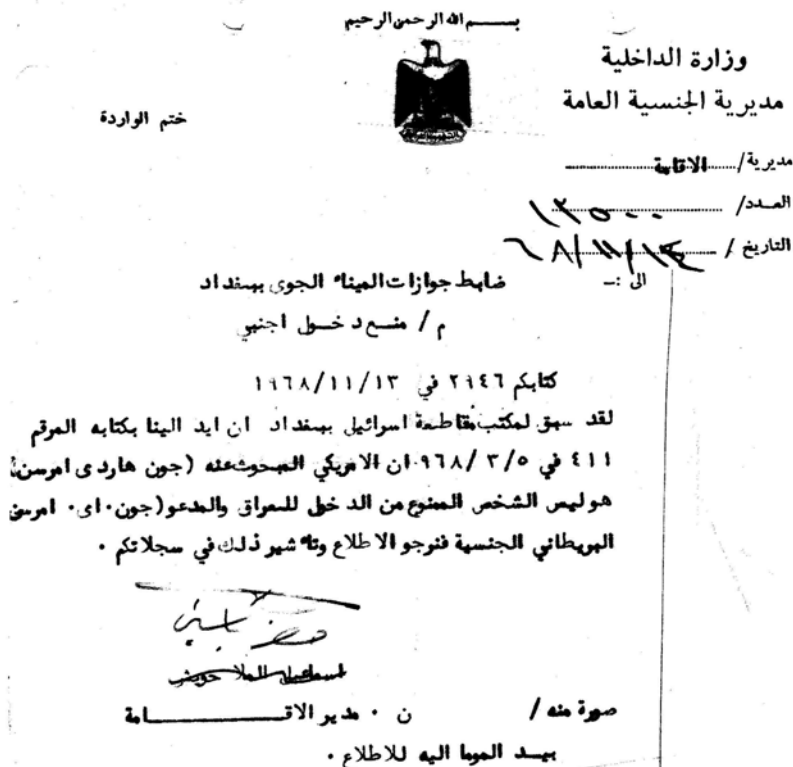 بسم الله الرحمن الرحيم
وزارة الداخلية
مديرية الجنسية العامة
ختم الواردة
مديرية/ الاقامة
العدد/ ١٢٥٠٠
التاريخ / ٦٨/١١/١٤
الى :ـ
ضابط جوازات الميناء الجوى ببغداد
م / منع دخول اجنبي
كتابكم ٢٩٤٦ في ١٩٦٨/١١/١٣
لقد سبق لمكتب مقاطعة اسرائيل ببغداد ان ايد الينا بكتابه المرقم
٤١١ في ٩٦٨/٣/٥ ان الامريكي المبحوث عنه (جون هاردى امرسن)
هو ليس الشخص الممنوع من الدخول للعراق والمدعو (جون٠ اى٠ امرسن
البريطاني الجنسية فنرجو الاطلاع وتاشير ذلك في سجلاتكم ٠
صورة منه /
ن ٠ مدير الاقامة
بيد الموما اليه للاطلاع ٠